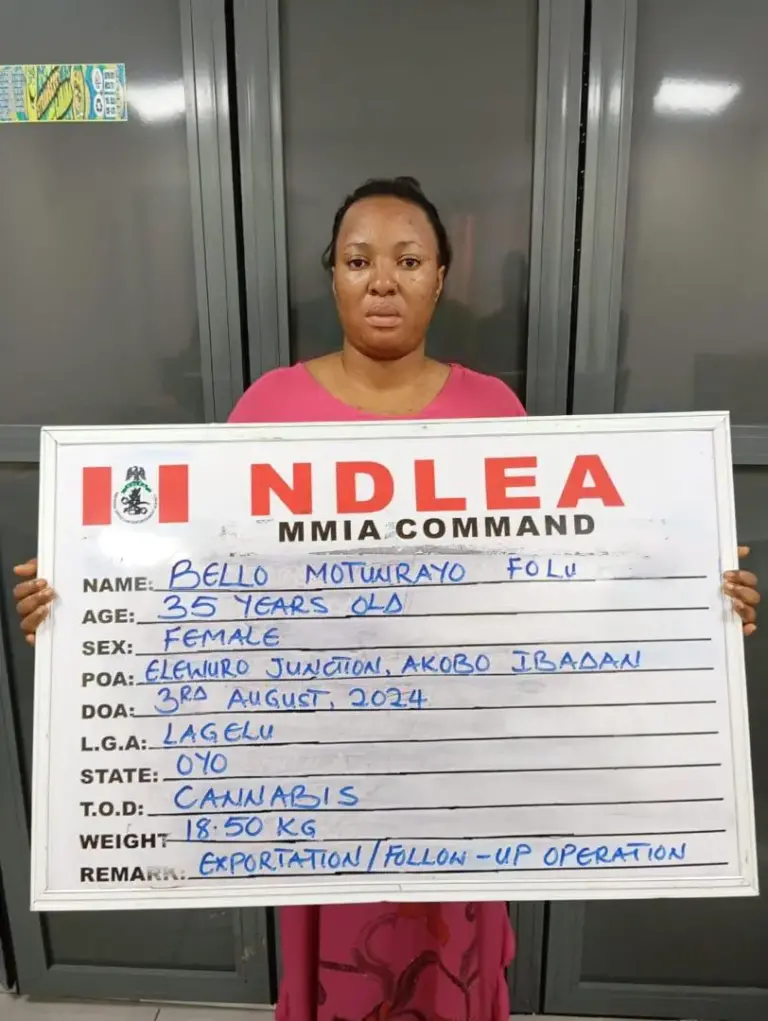 NDLEA
MMIA COMMAND
NAME: BELLO MOTUNRAYO FOLU
AGE: 35 YEARS OLD
SEX: FEMALE
POA: ELEWURO JUNCTION, AKOBO IBADAN
DOA: 3RD AUGUST, 2024
L.G.A: LAGELU
STATE: OYO
T.O.D: CANNABIS
WEIGHT 18.50 KG
REMARK: EXPORTATION/FOLLOW-UP OPERATION